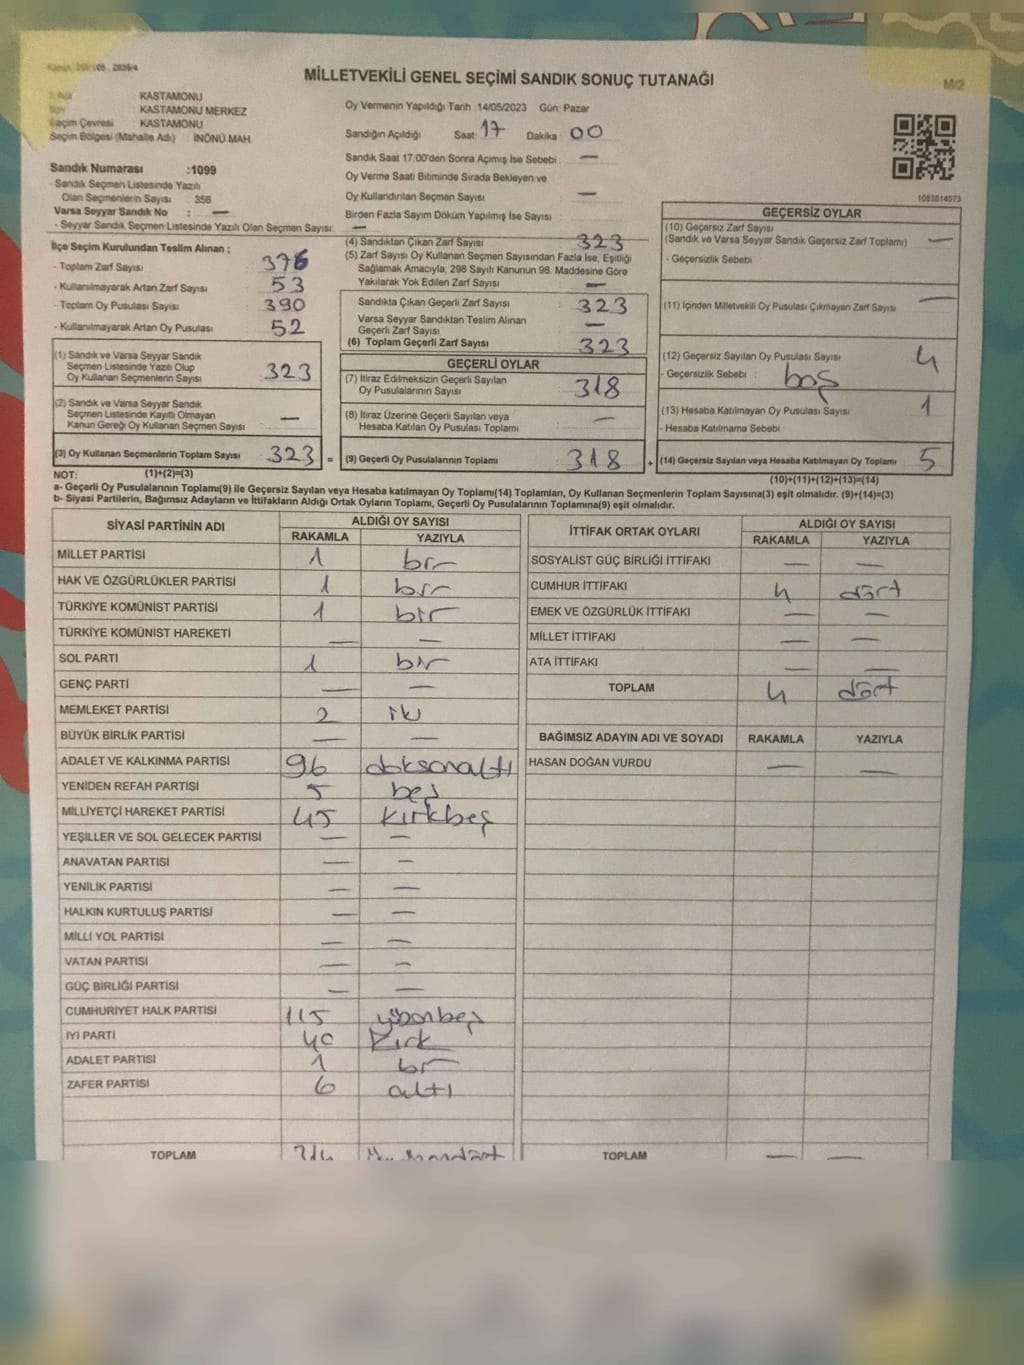 MİLLETVEKİLİ GENEL SEÇİMİ SANDIK SONUÇ TUTANAĞI
M/2
KASTAMONU
KASTAMONU MERKEZ
Seçim Çevresi : KASTAMONU
Seçim Bölgesi (Mahalle Adı) : İNÖNÜ MAH.
Oy Vermenin Yapıldığı Tarih :14/05/2023 Gün: Pazar
Sandığın Açıldığı Saat: 17 Dakika : 00
Sandık Saat 17:00'den Sonra Açımış İse Sebebi : —
Oy Verme Saati Bitiminde Sırada Bekleyen ve
Oy Kullandırılan Seçmen Sayısı : —
Birden Fazla Sayım Döküm Yapılmış İse Sayısı : —
Sandık Numarası :1099
- Sandık Seçmen Listesinde Yazılı
Olan Seçmenlerin Sayısı : 358
Varsa Seyyar Sandık No : —
- Seyyar Sandık Seçmen Listesinde Yazılı Olan Seçmen Sayısı:
1083814073
İlçe Seçim Kurulundan Teslim Alınan ;
- Toplam Zarf Sayısı : 376
- Kullanılmayarak Artan Zarf Sayısı : 53
- Toplam Oy Pusulası Sayısı : 390
- Kullanılmayarak Artan Oy Pusulası : 52
(1) Sandık ve Varsa Seyyar Sandık
Seçmen Listesinde Yazılı Olup
Oy Kullanan Seçmenlerin Sayısı : 323
(2) Sandık ve Varsa Seyyar Sandık
Seçmen Listesinde Kayıtlı Olmayan
Kanun Gereği Oy Kullanan Seçmen Sayısı : —
(3) Oy Kullanan Seçmenlerin Toplam Sayısı : 323 =
(4) Sandıktan Çıkan Zarf Sayısı : 323
(5) Zarf Sayısı Oy Kullanan Seçmen Sayısından Fazla İse, Eşitliği
Sağlamak Amacıyla, 298 Sayılı Kanunun 98. Maddesine Göre
Yakılarak Yok Edilen Zarf Sayısı : —
Sandıkta Çıkan Geçerli Zarf Sayısı : 323
Varsa Seyyar Sandıktan Teslim Alınan
Geçerli Zarf Sayısı : —
(6) Toplam Geçerli Zarf Sayısı : 323
GEÇERLİ OYLAR
(7) İtiraz Edilmeksizin Geçerli Sayılan
Oy Pusulalarının Sayısı : 318
(8) İtiraz Üzerine Geçerli Sayılan veya
Hesaba Katılan Oy Pusulası Toplamı : —
(9) Geçerli Oy Pusulalarının Toplamı : 318 +
GEÇERSİZ OYLAR
(10) Geçersiz Zarf Sayısı
(Sandık ve Varsa Seyyar Sandık Geçersiz Zarf Toplamı) : —
- Geçersizlik Sebebi :
(11) İçinden Milletvekili Oy Pusulası Çıkmayan Zarf Sayısı : —
(12) Geçersiz Sayılan Oy Pusulası Sayısı : 4
- Geçersizlik Sebebi : boş
(13) Hesaba Katılmayan Oy Pusulası Sayısı : 1
- Hesaba Katılmama Sebebi :
(14) Geçersiz Sayılan veya Hesaba Katılmayan Oy Toplamı : 5
NOT: (1)+(2)=(3)
(10)+(11)+(12)+(13)=(14)
a- Geçerli Oy Pusulalarının Toplamı(9) ile Geçersiz Sayılan veya Hesaba katılmayan Oy Toplamı(14) Toplamları, Oy Kullanan Seçmenlerin Toplam Sayısına(3) eşit olmalıdır. (9)+(14)=(3)
b- Siyasi Partilerin, Bağımsız Adayların ve İttifakların Aldığı Ortak Oyların Toplamı, Geçerli Oy Pusulalarının Toplamına(9) eşit olmalıdır.
SİYASİ PARTİNİN ADI ALDIĞI OY SAYISI
RAKAMLA YAZIYLA
MİLLET PARTİSİ 1 bir
HAK VE ÖZGÜRLÜKLER PARTİSİ 1 bir
TÜRKİYE KOMÜNİST PARTİSİ 1 bir
TÜRKİYE KOMÜNİST HAREKETİ — —
SOL PARTİ 1 bir
GENÇ PARTİ — —
MEMLEKET PARTİSİ 2 iki
BÜYÜK BİRLİK PARTİSİ — —
ADALET VE KALKINMA PARTİSİ 96 doksanaltı
YENİDEN REFAH PARTİSİ 5 beş
MİLLİYETÇİ HAREKET PARTİSİ 45 kırkbeş
YEŞİLLER VE SOL GELECEK PARTİSİ — —
ANAVATAN PARTİSİ — —
YENİLİK PARTİSİ — —
HALKIN KURTULUŞ PARTİSİ — —
MİLLİ YOL PARTİSİ — —
VATAN PARTİSİ — —
GÜÇ BİRLİĞİ PARTİSİ — —
CUMHURİYET HALK PARTİSİ 115 yüzonbeş
İYİ PARTİ 40 kırk
ADALET PARTİSİ 1 bir
ZAFER PARTİSİ 6 altı
TOPLAM
İTTİFAK ORTAK OYLARI ALDIĞI OY SAYISI
RAKAMLA YAZIYLA
SOSYALİST GÜÇ BİRLİĞİ İTTİFAKI — —
CUMHUR İTTİFAKI 4 dört
EMEK VE ÖZGÜRLÜK İTTİFAKI — —
MİLLET İTTİFAKI — —
ATA İTTİFAKI — —
TOPLAM 4 dört
BAĞIMSIZ ADAYIN ADI VE SOYADI RAKAMLA YAZIYLA
HASAN DOĞAN VURDU — —
TOPLAM — —